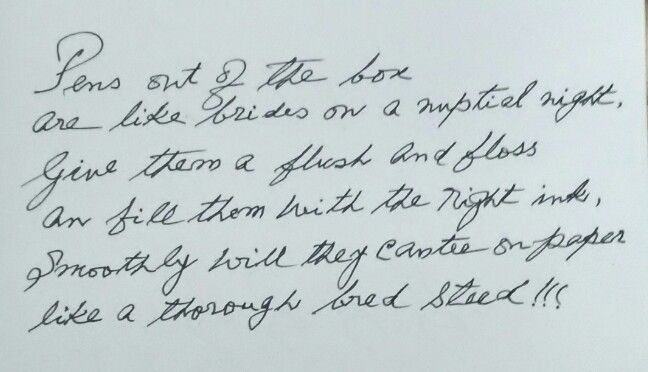 Pens out of the box
are like brides on a nuptial night,
Give them a flush and floss
an fill them with the right ink,
Smoothly will they cantee on paper
like a thorough bred steed!!!